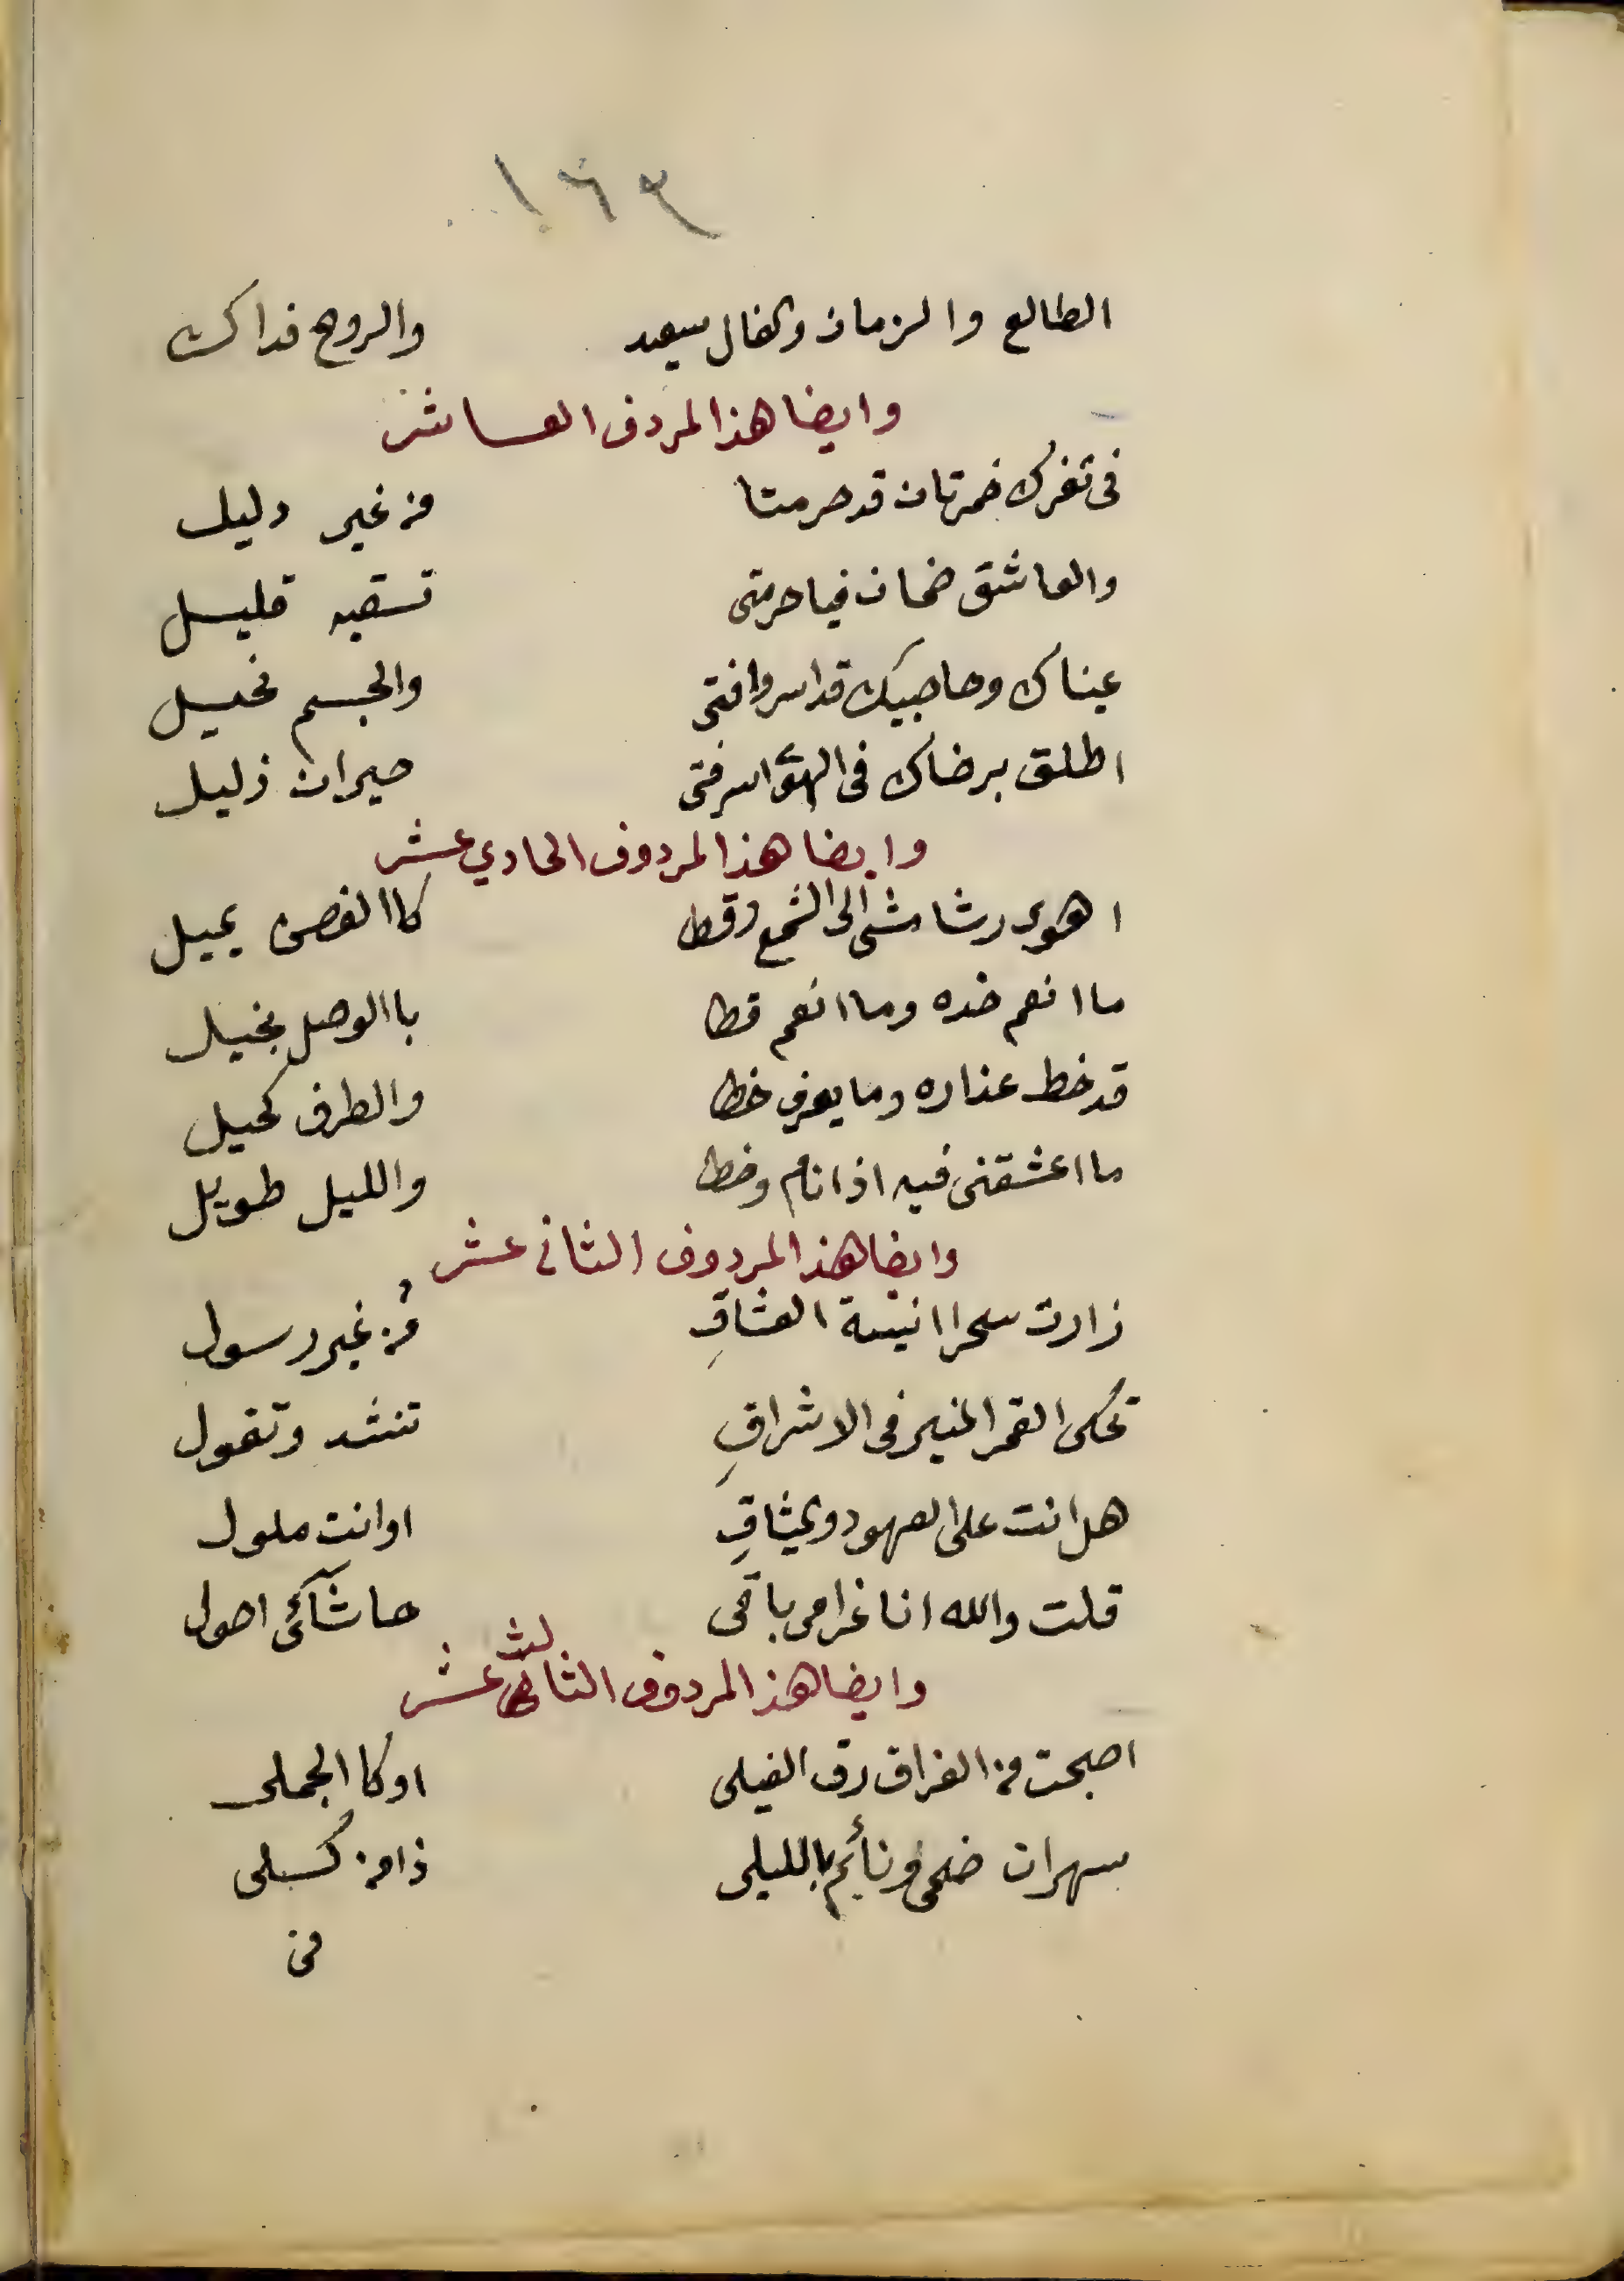 ١٦٣
الطالع والزمان والفال سعيد والروح فداك
وايضا هذا المردف العاشر
فى ثغرك خمرتان قد حرمتا من غير دليل
والعاشق ضمان فيا حرمتى تسقيه قليل
عيناك وحاجبيك قد اسروا فتى والجسم نحيل
اطلق برضاك فى الهوى اسر فتى حيران ذليل
وايضا هذا المردوف الحادي عشر
اهوى رشا مشى الى الشمع وقطا كاالغصن يميل
ما انعم خده وما انعم قطا باالوصل بخيل
قد خط عذاره وما يعرف خطا والطرف كحيل
ما اعشقنى فيه اذا نام وخطا والليل طويل
وايضا هذا المردوف الثانى عشر
زارت سحرا انيسة العشاقِ من غير رسول
تحكى القمر المنير فى الاشراقِ تنشد وتقول
هل انت على العهود والميثاقِ او انت ملول
قلت والله انا غرامى باقى حاشاكى احول
وايضا هذا المردوف الثالث عشر
اصبحت من الفراق رق الفيلى اوكا الجملى
سهران ضحى ونائم بالليلى ذا من كسلى
من